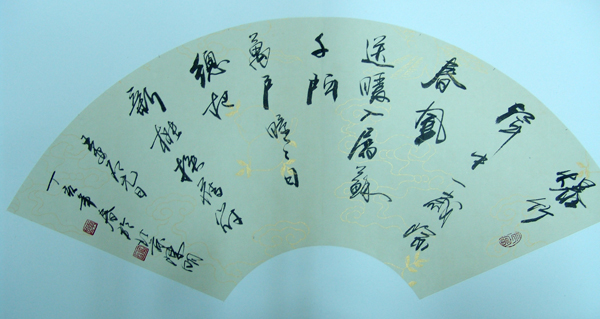 爆竹
聲中一歲除
春風
送暖入屠蘇
千門
萬戶曈々日
總把
新桃換舊符
元日
丁亥年春於北京